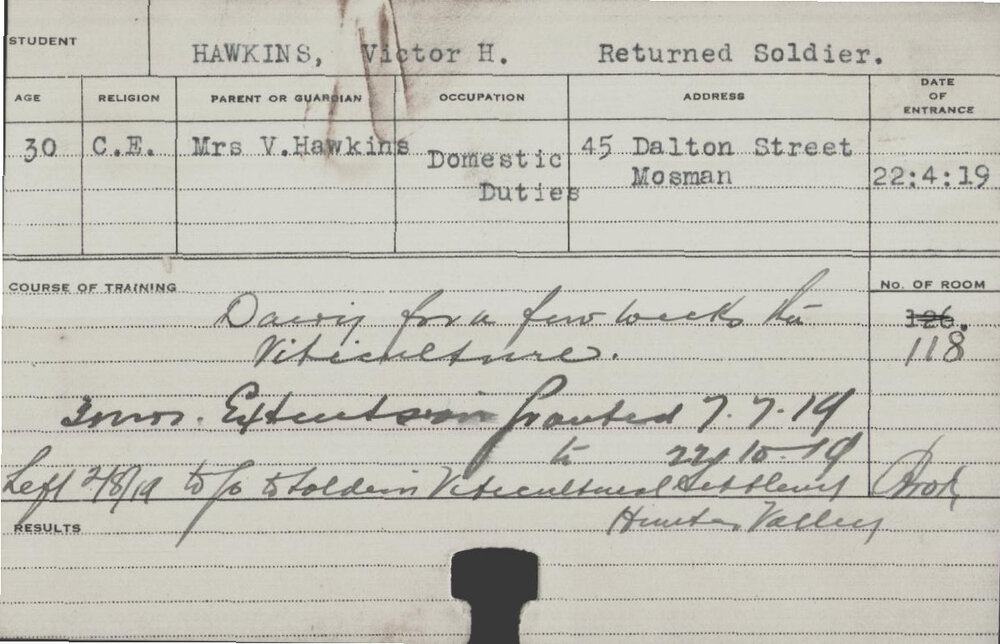 STUDENT
HAWKINS, Victor H. Returned Soldier.
AGE RELIGION PARENT OR GUARDIAN OCCUPATION ADDRESS DATE OF ENTRANCE
30 C.E. Mrs V.Hawkins Domestic Duties 45 Dalton Street
Mosman 22:4:19
COURSE OF TRAINING No. OF ROOM
Dairy for a few weeks then 126.
Viticulture. 118
3mos. Extension granted 7.7.19
to 22/10/19
Left 2/8/19 to go to Soldiers Viticultural Settlement Pok
Hunter Valley
RESULTS